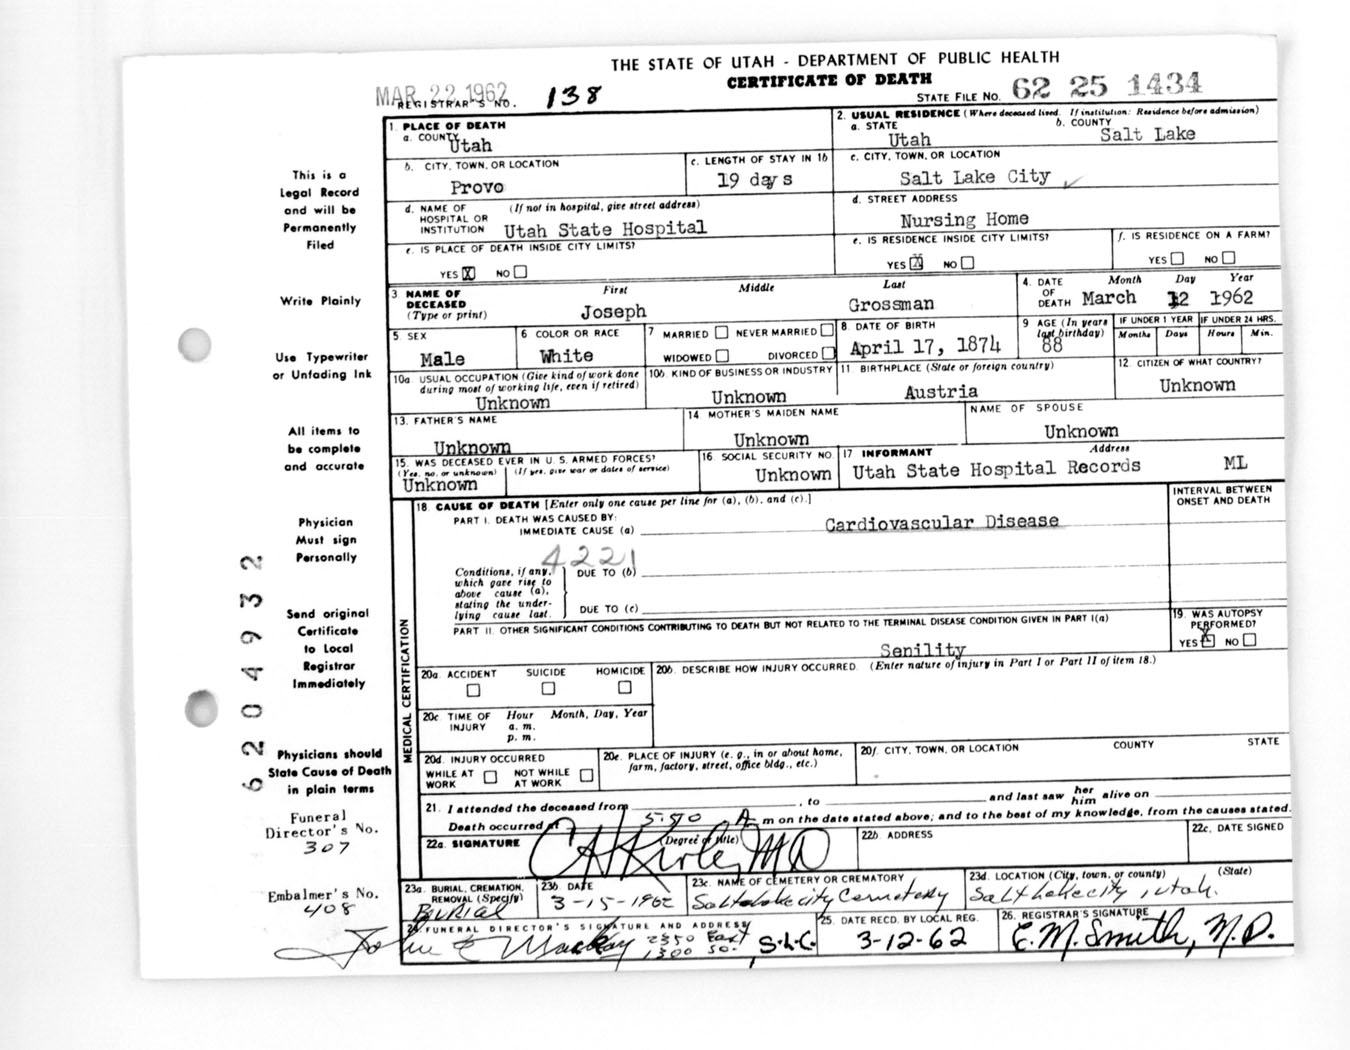 THE STATE OF UTAH - DEPARTMENT OF PUBLIC HEALTH
CERTIFICATE OF DEATH
MAR 22 1962
REGISTRAR'S NO. 138
STATE FILE NO. 62 25 1434
1. PLACE OF DEATH
a. COUNTY Utah
2. USUAL RESIDENCE (Where deceased lived. If institution: Residence before admission)
a. STATE Utah
b. COUNTY Salt Lake
b. CITY, TOWN, OR LOCATION Provo
c. LENGTH OF STAY IN 1b 19 days
c. CITY, TOWN, OR LOCATION Salt Lake City
d. NAME OF HOSPITAL OR INSTITUTION (If not in hospital, give street address) Utah State Hospital
d. STREET ADDRESS Nursing Home
e. IS PLACE OF DEATH INSIDE CITY LIMITS?
YES X NO
e. IS RESIDENCE INSIDE CITY LIMITS?
YES X NO
f. IS RESIDENCE ON A FARM?
YES NO
3 NAME OF DECEASED (Type or print)
First Middle Last
Joseph Grossman
4. DATE OF DEATH
Month Day Year
March 12 1962
5. SEX Male
6 COLOR OR RACE White
7 MARRIED NEVER MARRIED
WIDOWED DIVORCED
8. DATE OF BIRTH April 17, 1874
9 AGE (In years last birthday) 88
IF UNDER 1 YEAR Months Days
IF UNDER 24 HRS. Hours Min.
10a. USUAL OCCUPATION (Give kind of work done during most of working life, even if retired) Unknown
10b. KIND OF BUSINESS OR INDUSTRY Unknown
11 BIRTHPLACE (State or foreign country) Austria
12. CITIZEN OF WHAT COUNTRY? Unknown
13. FATHER'S NAME Unknown
14 MOTHER'S MAIDEN NAME Unknown
NAME OF SPOUSE Unknown
15. WAS DECEASED EVER IN U. S. ARMED FORCES?
(Yes, no, or unknown) (If yes, give war or dates of service)
Unknown
16. SOCIAL SECURITY NO. Unknown
17 INFORMANT Address
Utah State Hospital Records ML
18. CAUSE OF DEATH [Enter only one cause per line for (a), (b), and (c).]
INTERVAL BETWEEN ONSET AND DEATH
PART I. DEATH WAS CAUSED BY:
IMMEDIATE CAUSE (a) Cardiovascular Disease
4221
Conditions, if any, which gave rise to above cause (a), stating the underlying cause last.
DUE TO (b)
DUE TO (c)
PART II. OTHER SIGNIFICANT CONDITIONS CONTRIBUTING TO DEATH BUT NOT RELATED TO THE TERMINAL DISEASE CONDITION GIVEN IN PART I(a)
Senility
19. WAS AUTOPSY PERFORMED?
YES X NO
MEDICAL CERTIFICATION
20a. ACCIDENT SUICIDE HOMICIDE
20b. DESCRIBE HOW INJURY OCCURRED. (Enter nature of injury in Part I or Part II of item 18.)
20c. TIME OF INJURY Hour Month, Day, Year
a. m.
p. m.
20d. INJURY OCCURRED
WHILE AT WORK NOT WHILE AT WORK
20e. PLACE OF INJURY (e. g., in or about home, farm, factory, street, office bldg., etc.)
20f. CITY, TOWN, OR LOCATION COUNTY STATE
21. I attended the deceased from , to and last saw her him alive on
Death occurred at A. m on the date stated above; and to the best of my knowledge, from the causes stated.
22a. SIGNATURE (Degree or title) MD
22b ADDRESS
22c. DATE SIGNED
23a. BURIAL, CREMATION, REMOVAL (Specify) Burial
23b. DATE 3-15-1962
23c. NAME OF CEMETERY OR CREMATORY Salt Lake City Cemetery
23d. LOCATION (City, town, or county) (State) Salt Lake City, Utah.
24. FUNERAL DIRECTOR'S SIGNATURE AND ADDRESS
John E Mackay 2350 East 1300 So. S.L.C.
25. DATE RECD. BY LOCAL REG. 3-12-62
26. REGISTRAR'S SIGNATURE
E. M. Smith, M.D.
This is a
Legal Record
and will be
Permanently
Filed
Write Plainly
Use Typewriter
or Unfading Ink
All items to
be complete
and accurate
Physician
Must sign
Personally
Send original
Certificate
to Local
Registrar
Immediately
Physicians should
State Cause of Death
in plain terms
Funeral
Director's No.
307
Embalmer's No.
408
6204932